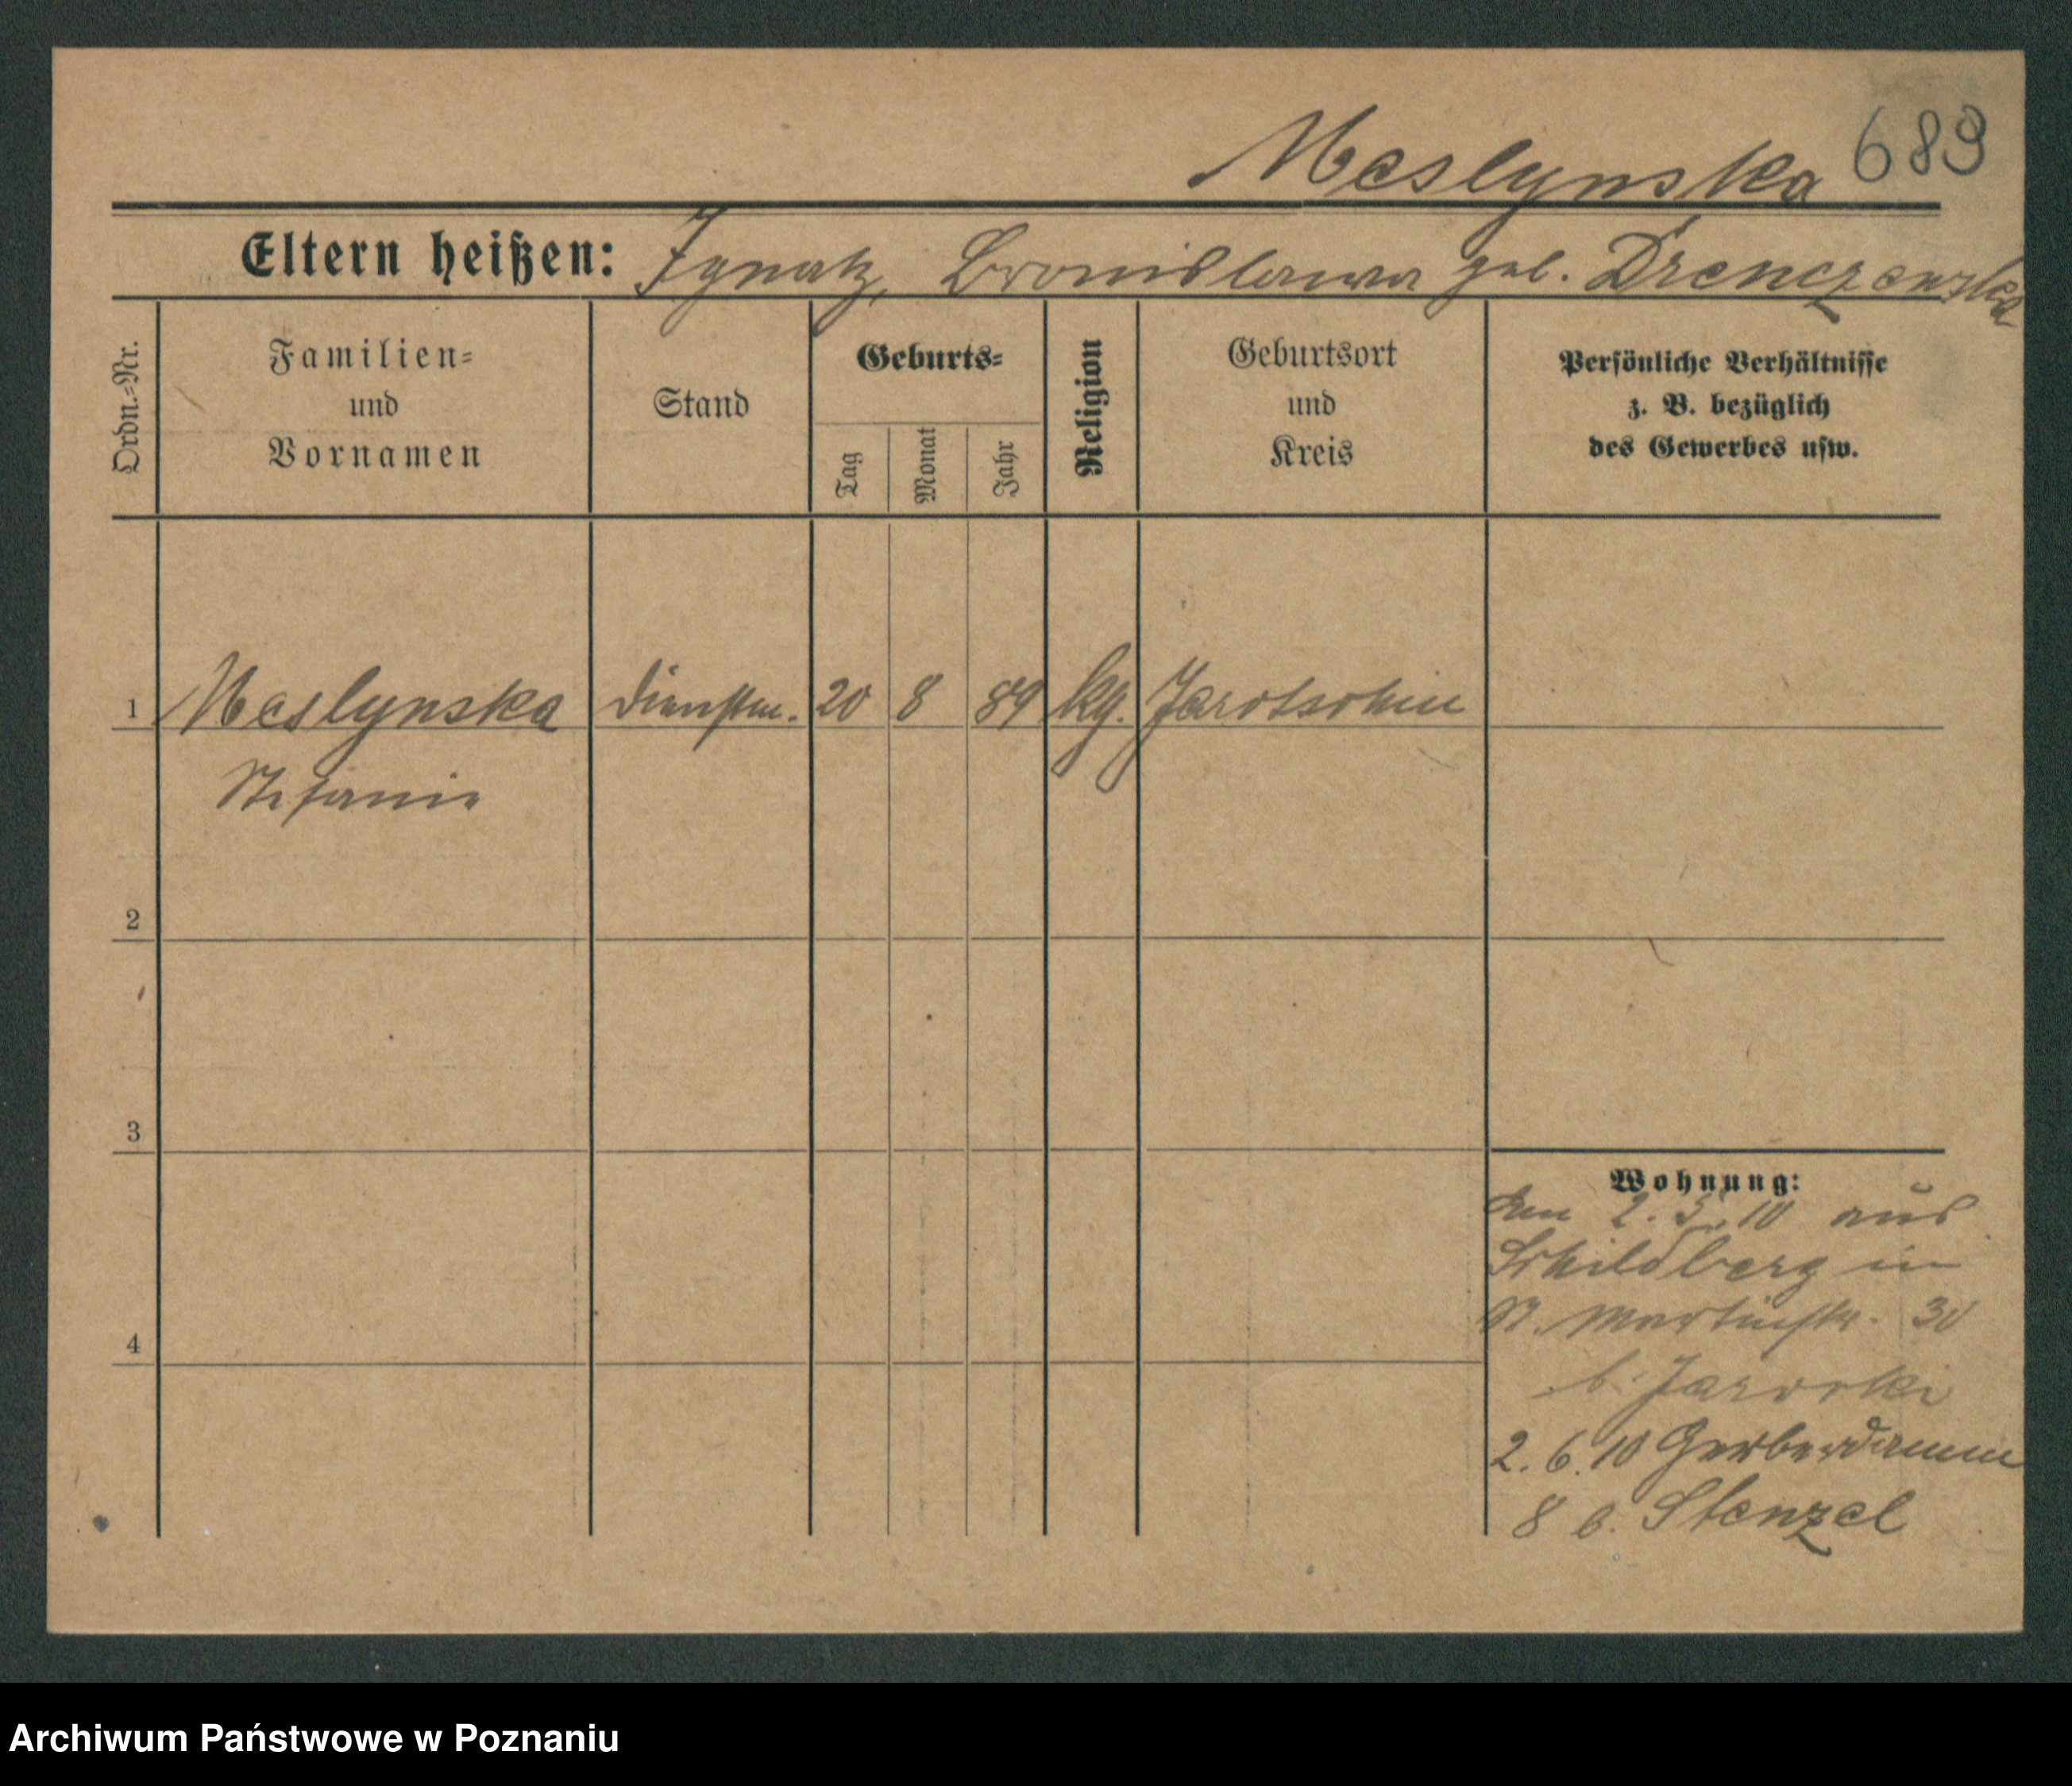 Meslynska 689
Eltern heißen: Ignatz, Bronislawa geb. Drenczewska
Ordn.-Nr.
Familien-
und
Vornamen
Stand
Geburts-
Tag
Monat
Jahr
Religion
Geburtsort
und
Kreis
Persönliche Verhältnisse
z. B. bezüglich
des Gewerbes usw.
1 Meslynska Dienstm. 20 8 89 kg. Jarotschin
Stefanie
2
3
4
Wohnung:
den 2. 5. 10 aus
Schildberg in
St. Martinstr. 30
b. Jarocki
2. 6. 10 Gerberdamm
8 b. Stenzel
Archiwum Państwowe w Poznaniu